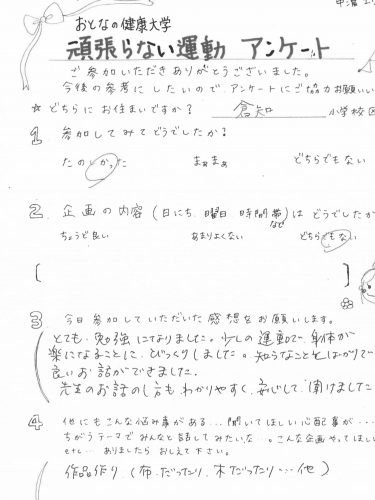 おとなの健康大学
頑張らない運動 アンケート
ご参加いただきありがとうございました。
今後の参考にしたいので、アンケートにご協力お願いい
☆ どちらにお住まいですか? 倉知 小学校区
1 参加してみてどうでしたか?
たのしかった まぁまぁ どちらでもない
2. 企画の内容(日にち、曜日、時間帯)はどうでしたか
なぜ
ちょうど良い あまりよくない どちらでもない
3 今日参加していただいた感想をお願いします。
とても、勉強になりました。少しの運動で、身体が
楽になることに、びっくりしました。知らないことばかりで
良いお話ができました。
先生のお話のし方も、わかりやすく、安心して、聞けました
4 他にもこんな悩み事がある…聞いてほしい心配事が…
ちがうテーマでみんなと話してみたいな…。こんな企画やってほしい
etc… ありましたらおしえて下さい。
作品作り、(布だったり、木だったり…他)